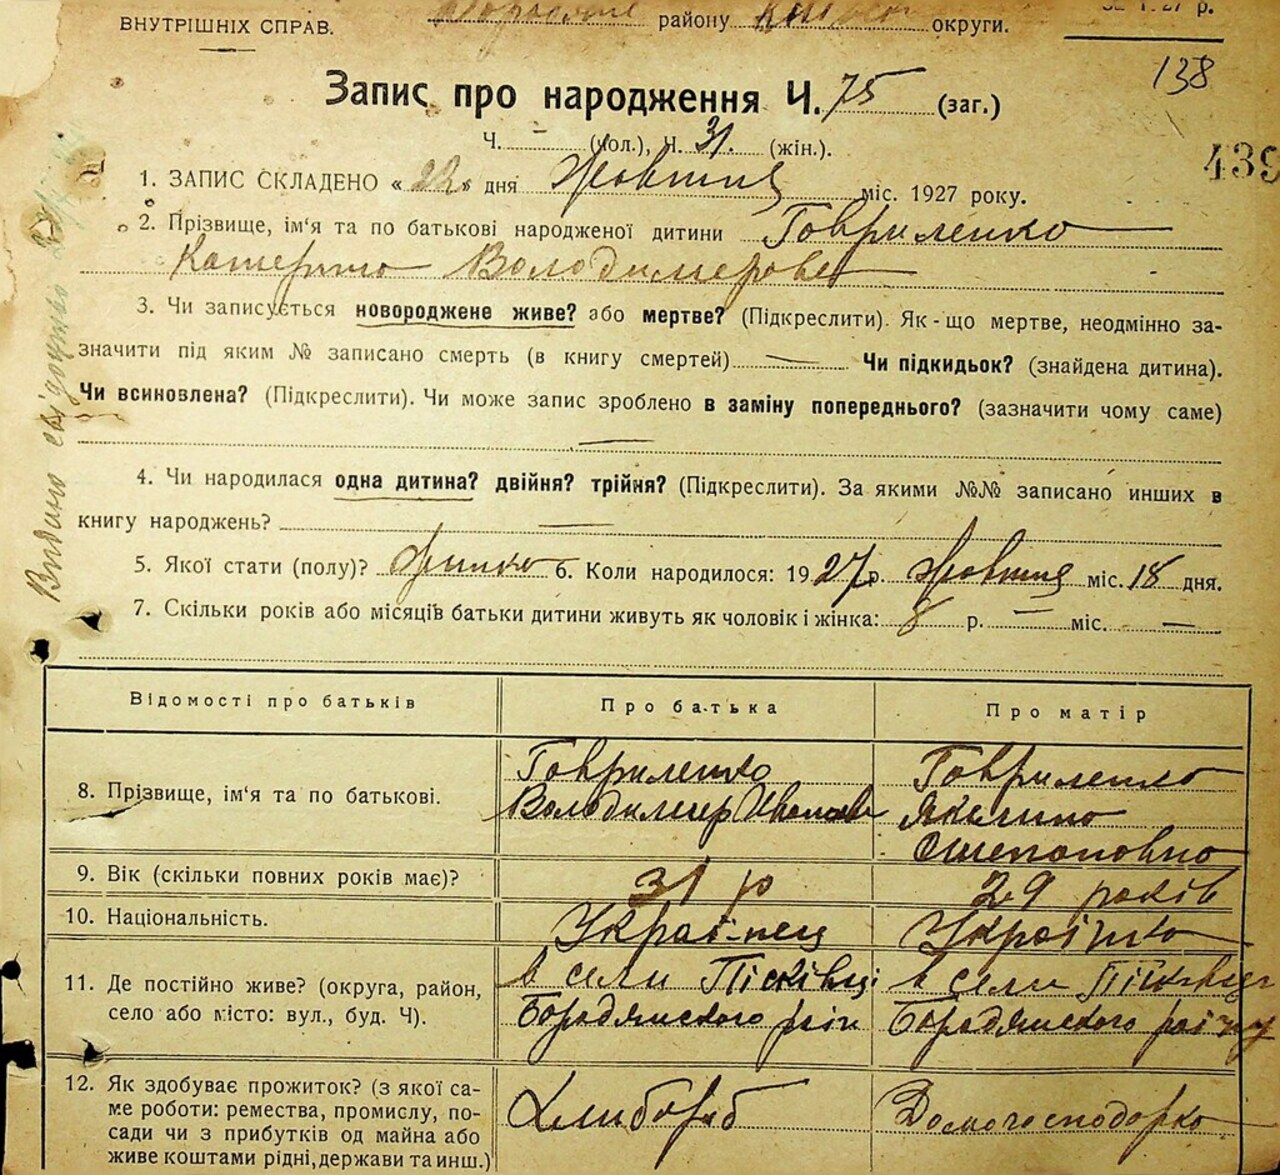 ВНУТРІШНІХ СПРАВ.
району округи.
1927 р.
138
Запис про народження Ч. 75 (заг.)
Ч. – (чол.), Ч. 31. (жін.).
439
1. ЗАПИС СКЛАДЕНО «22» дня Жовтня міс. 1927 року.
2. Прізвище, ім'я та по батькові народженої дитини Гавриленко
Катерина Володимерова
3. Чи записується новороджене живе? або мертве? (Підкреслити). Як-що мертве, неодмінно за-
значити під яким № записано смерть (в книгу смертей) — Чи підкидьок? (знайдена дитина).
Чи всиновлена? (Підкреслити). Чи може запис зроблено в заміну попереднього? (зазначити чому саме)
—
4. Чи народилася одна дитина? двійня? трійня? (Підкреслити). За якими №№ записано инших в
книгу народжень? —
5. Якої стати (полу)? 6. Коли народилося: 1927 р. Жовтня міс. 18 дня.
7. Скільки років або місяців батьки дитини живуть як чоловік і жінка: 8 р. — міс. —
Відомості про батьків Про батька Про матір
8. Прізвище, ім'я та по батькові. Гавриленко Володимер Іванов Гавриленко Якилина Степановна
9. Вік (скільки повних років має)? 31 р 29 років
10. Національність. Украі-нец Украінка
11. Де постійно живе? (округа, район, село або місто: вул., буд. Ч). в сели Пісківці Бородянського раін в сели Пісківци Бородянського раіну
12. Як здобуває прожиток? (з якої са-
ме роботи: ремества, промислу, по-
сади чи з прибутків од майна або
живе коштами рідні, держави та инш.) Хлибороб Домогосподарка
Видано свідоцтво